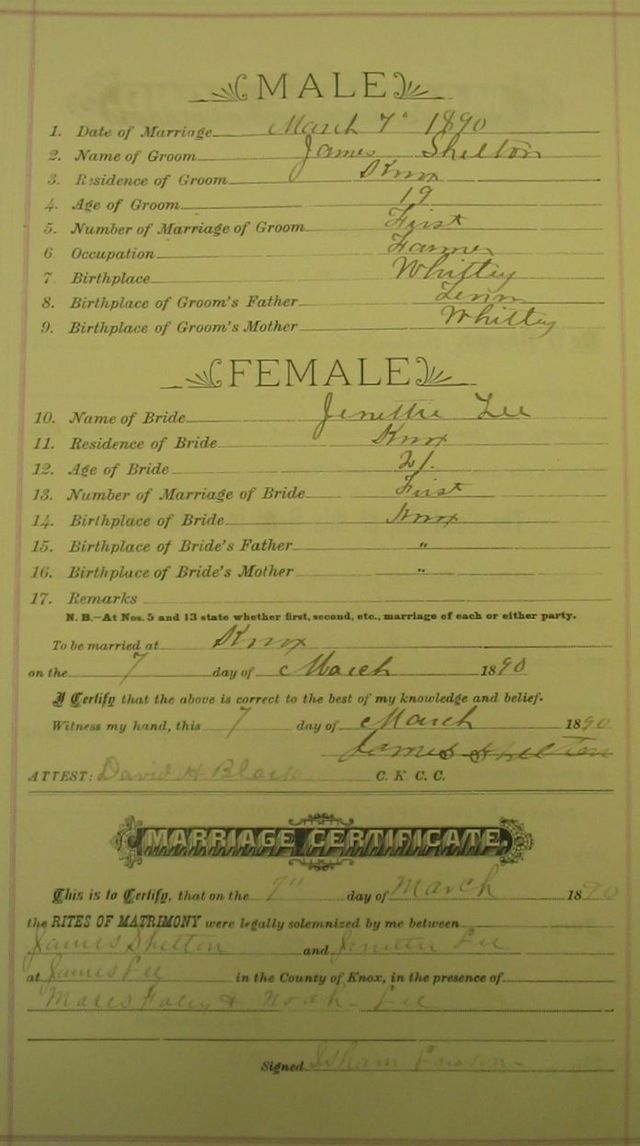 MALE
1. Date of Marriage March 7" 1890
2. Name of Groom James Shelton
3. Residence of Groom Knox
4. Age of Groom 19
5. Number of Marriage of Groom First
6 Occupation Farmer
7 Birthplace Whitley
8. Birthplace of Groom's Father Tenn
9. Birthplace of Groom's Mother Whitley
FEMALE
10. Name of Bride Jenettie Lee
11. Residence of Bride Knox
12. Age of Bride 21.
13. Number of Marriage of Bride First
14. Birthplace of Bride Knox
15. Birthplace of Bride's Father "
16. Birthplace of Bride's Mother "
17. Remarks
N. B.—At Nos. 5 and 13 state whether first, second, etc., marriage of each or either party.
To be married at Knox
on the 7 day of March 1890
I Certify that the above is correct to the best of my knowledge and belief.
Witness my hand, this 7 day of March 1890
James Shelton
ATTEST: David H Black C. K. C. C.
MARRIAGE CERTIFICATE.
This is to Certify, that on the 7" day of March 1890
the RITES OF MATRIMONY were legally solemnized by me between
James Shelton and Jenettie Lee
at James Lee in the County of Knox, in the presence of
Moses & Noah Lee
Signed Isham